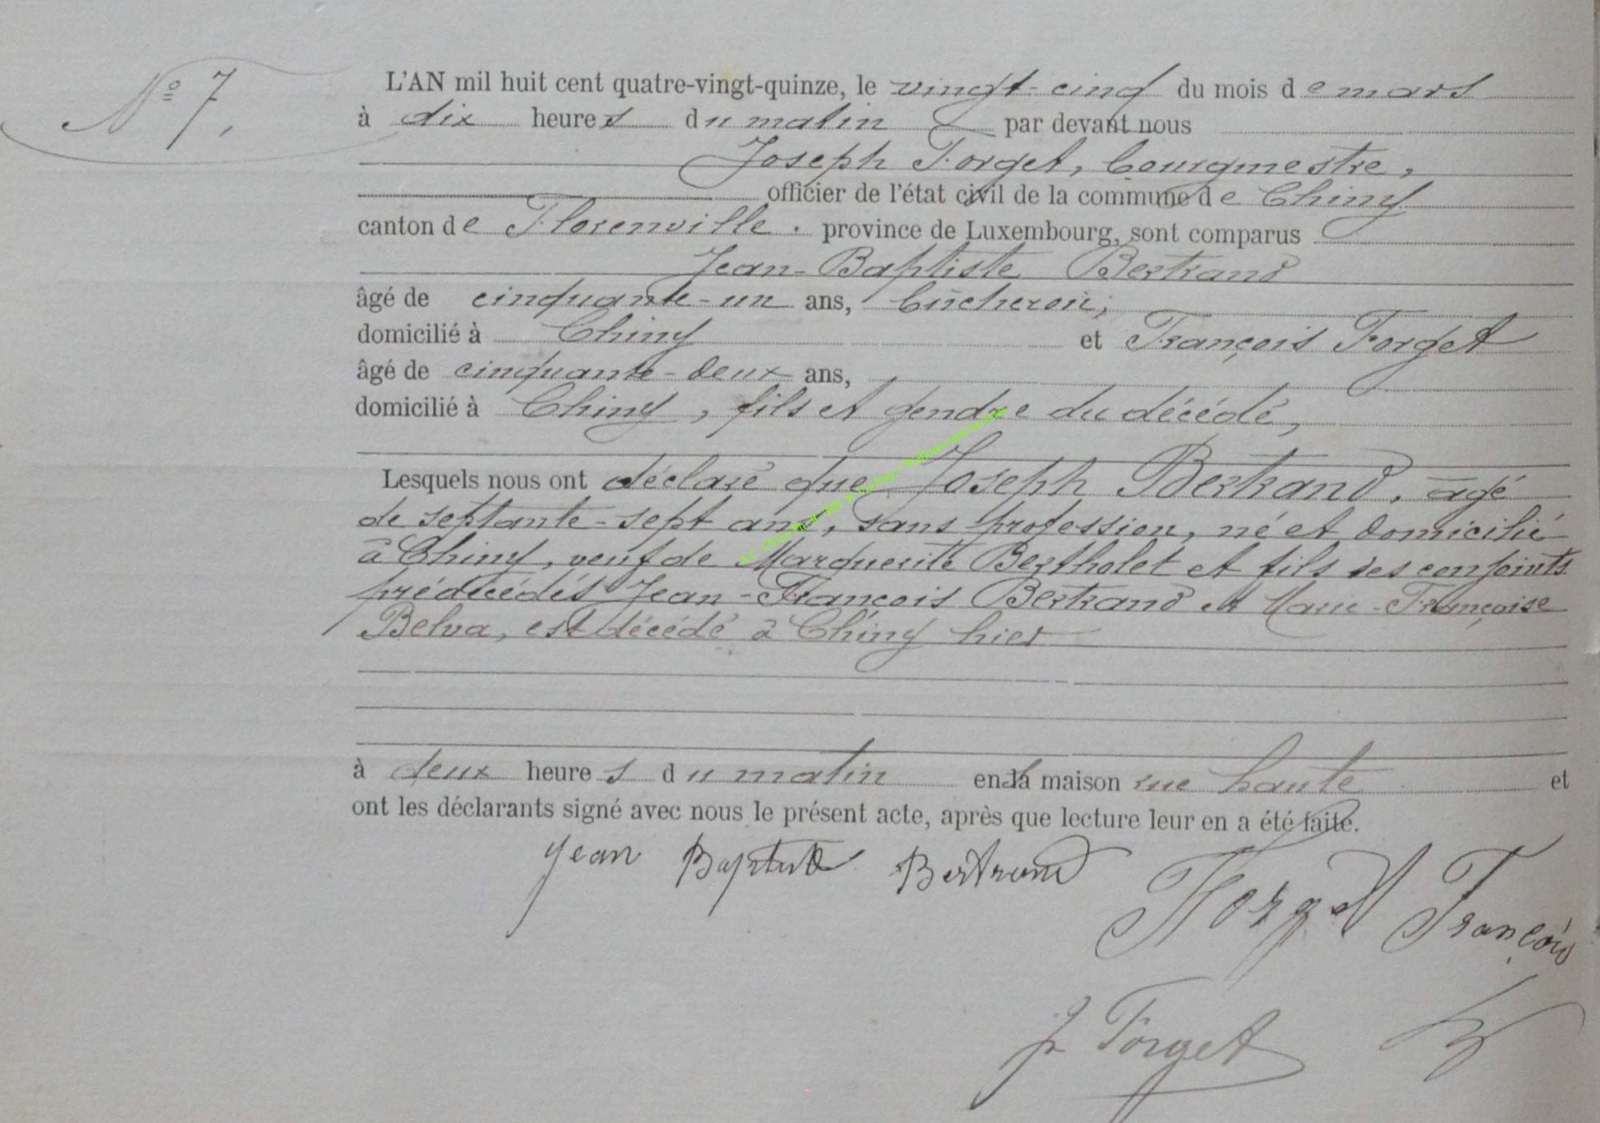 Nº 7.
L'AN mil huit cent quatre-vingt-quinze, le vingt-cinq du mois de mars
à dix heures du matin par devant nous
Joseph Forget, bourgmestre,
officier de l'état civil de la commune de Chiny
canton de Florenville. province de Luxembourg, sont comparus
Jean-Baptiste Bertrand
âgé de cinquante-un ans, bûcheron,
domicilié à Chiny et François Forget
âgé de cinquante-deux ans,
domicilié à Chiny, fils et gendre du décédé,
Lesquels nous ont déclaré que Joseph Bertrand, âgé
de septante-sept ans, sans profession, né et domicilié
à Chiny, veuf de Marguerite Bertholet et fils des conjoints
prédécédés Jean-François Bertrand et Marie-Françoise
Belva, est décédé à Chiny hier
à deux heures du matin en la maison rue haute et
ont les déclarants signé avec nous le présent acte, après que lecture leur en a été faite.
Jean Baptiste Bertrand
Forget François
J Forget